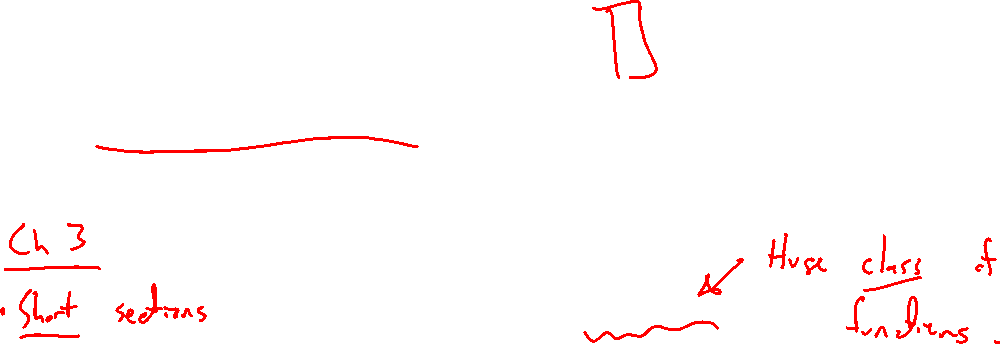 Ch 3
• Short sections
Huge class of
functions.